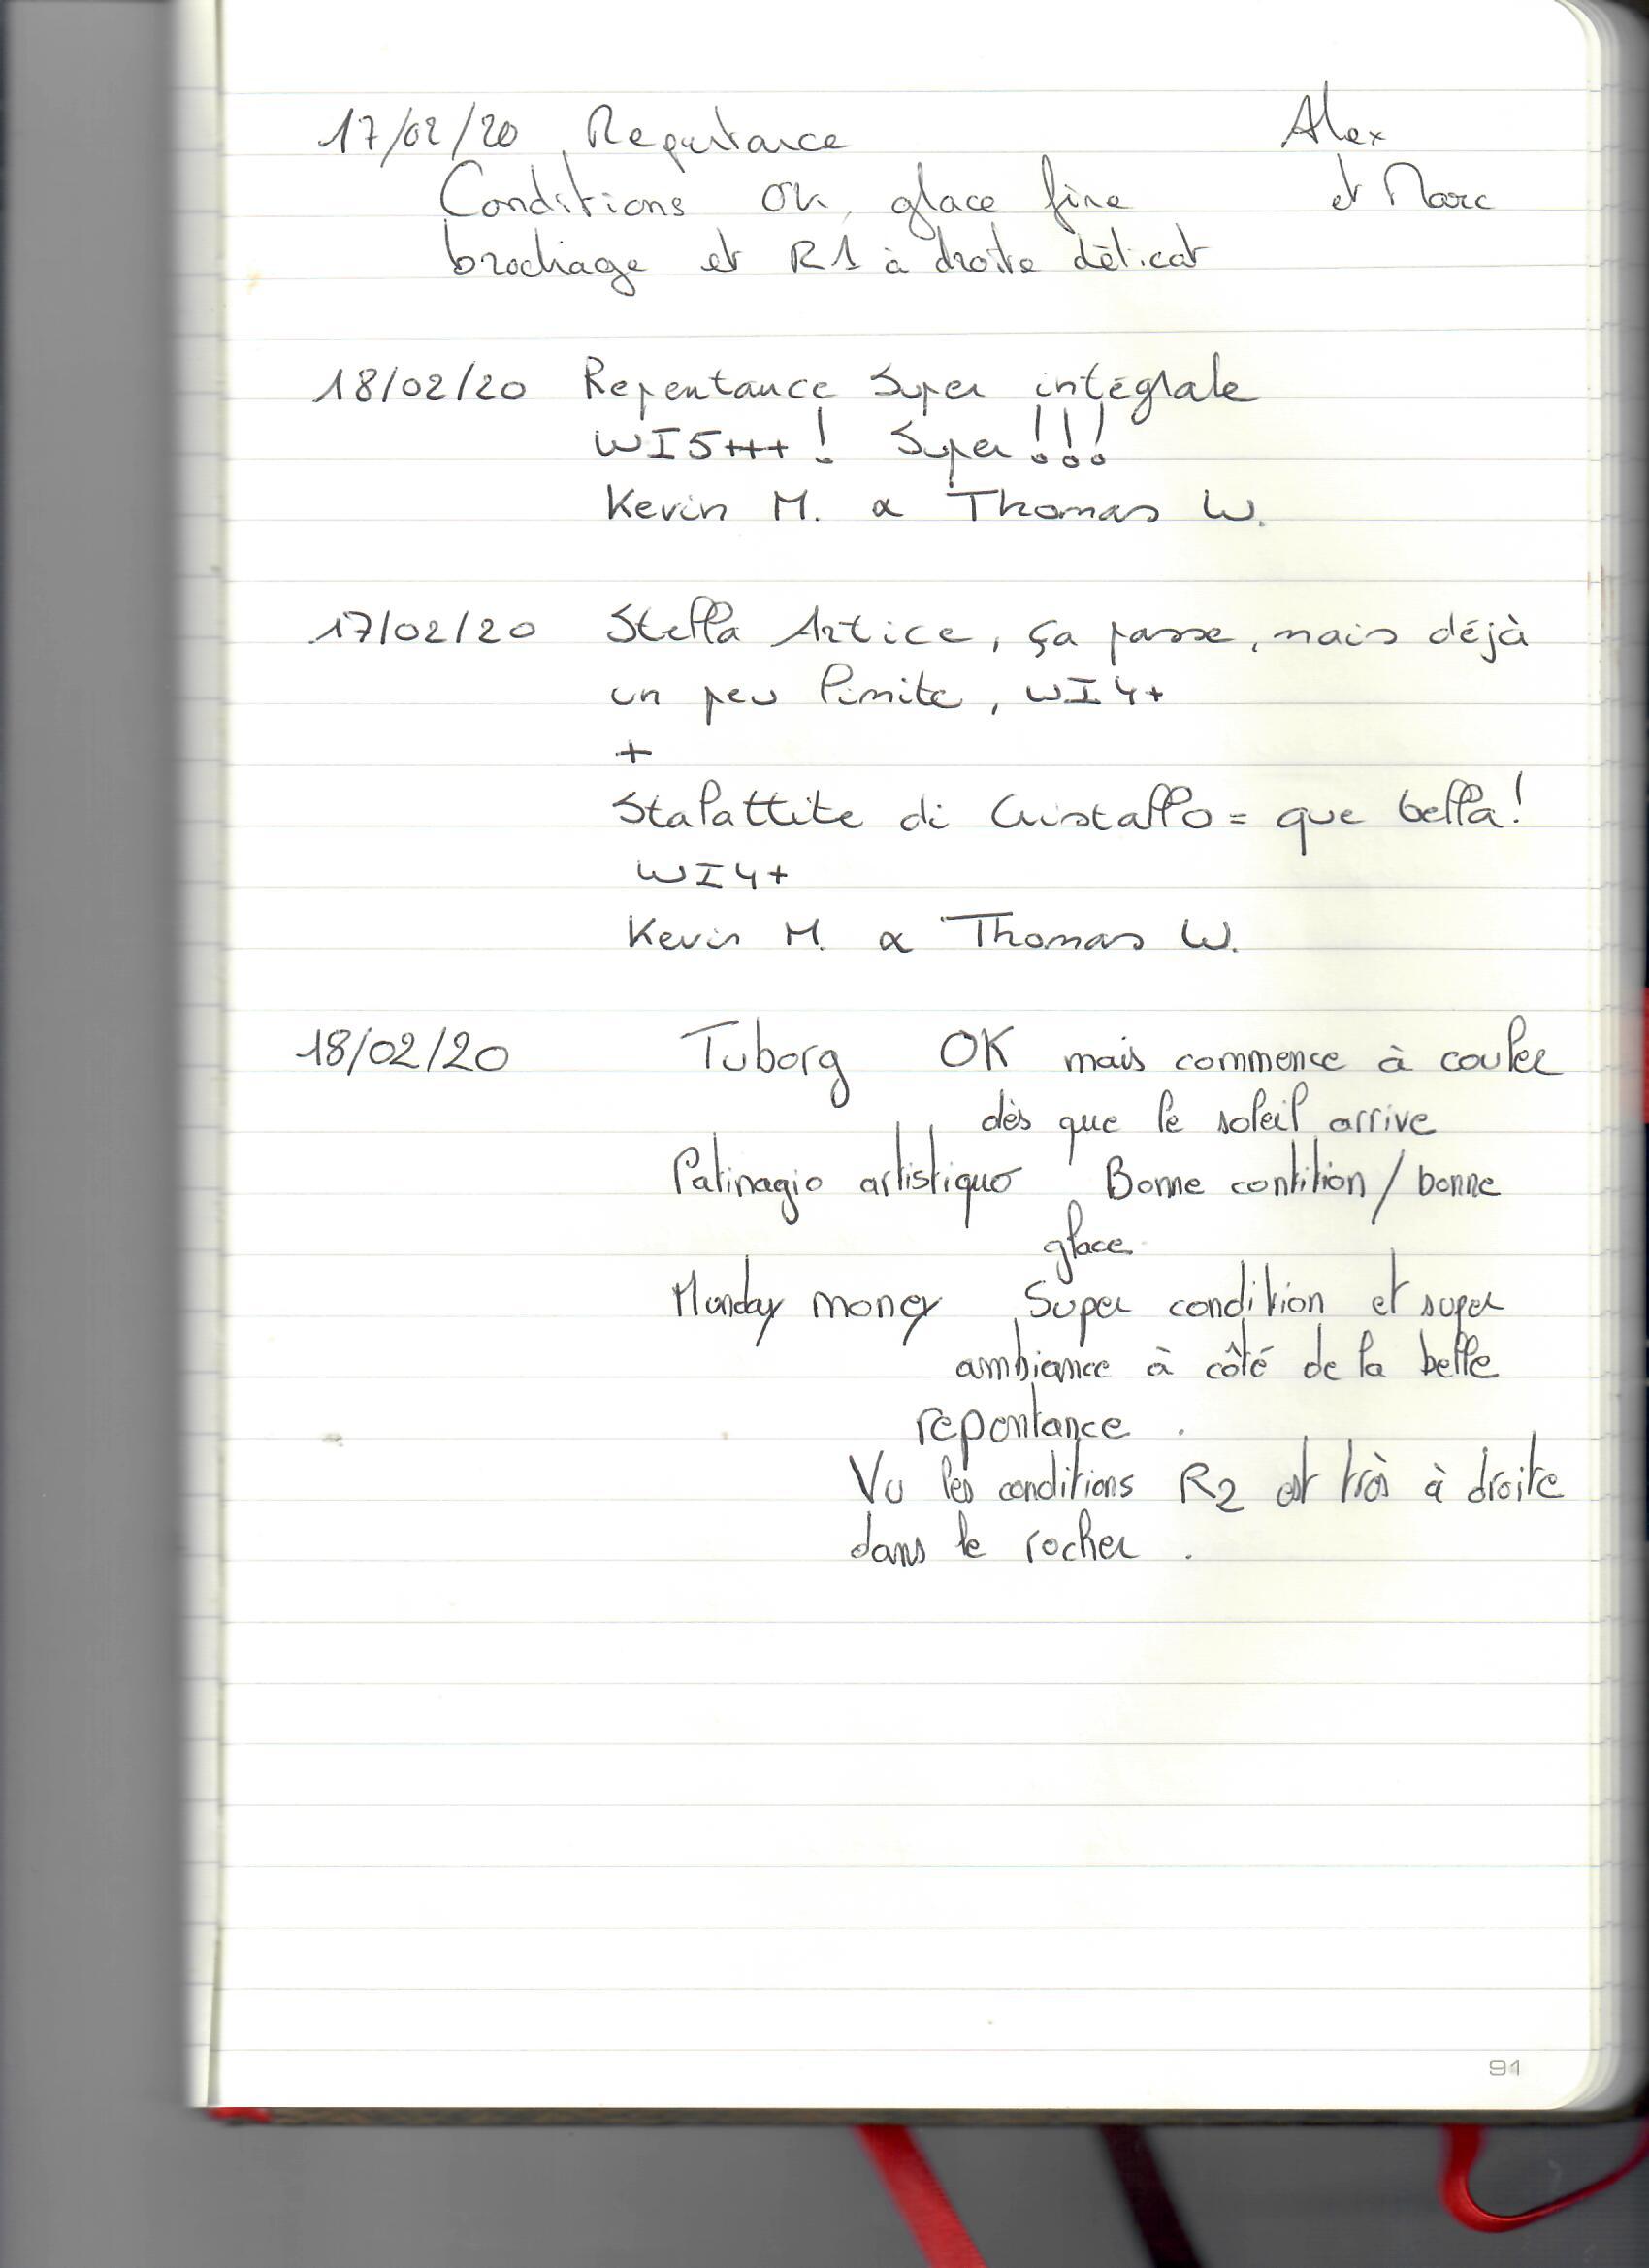 17/02/20 Repentance Alex
Conditions OK, glace fine et Marc
brochage et R1 à droite délicat
18/02/20 Repentance Super intégrale
WI5+++! Super!!!
Kevin M. & Thomas W.
17/02/20 Stella Artice, ça passe, mais déjà
un peu limite, WI4+
+
Stalattite di Cristallo = que bella!
WI4+
Kevin M. & Thomas W.
18/02/20 Tuborg OK mais commence à couler
dès que le soleil arrive
Patinagio artistiquo Bonne contition / bonne
glace
Monday money Super condition et super
ambiance à côté de la belle
repentance.
Vu les conditions R2 est très à droite
dans le rocher.
91